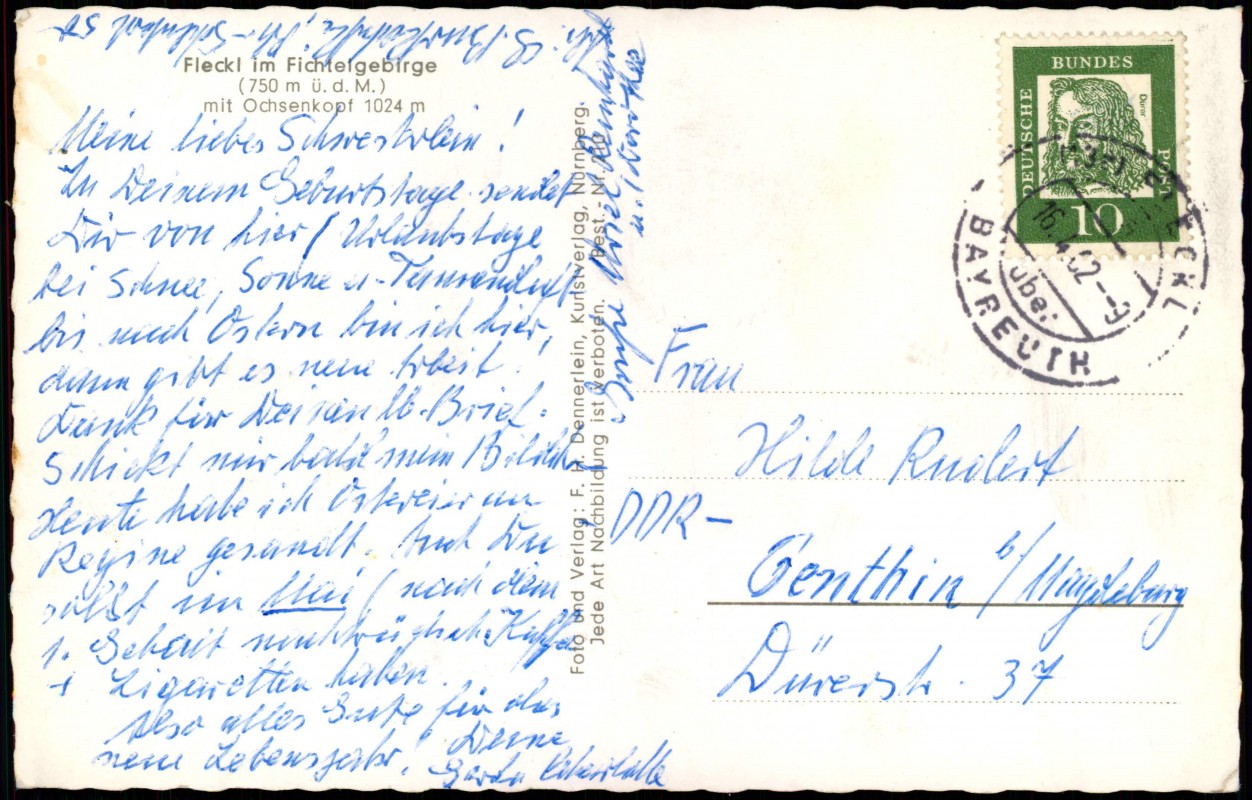 Fleckl im Fichtelgebirge
(750 m ü. d. M.)
mit Ochsenkopf 1024 m
Meine liebes Schwesterlein!
Zu Deinem Geburtstage sendet
Dir von hier / Urlaubstage
bei Schnee, Sonne u. Tannenduft
bis nach Ostern bin ich hier,
dann gibt es neue Arbeit.
Dank für Deinen lb. Brief.
Schickt mir bald mein Bildchen
Heute habe ich Ostereier an
Regine gesandt. Auch Du
sollst im Mai / nach dem
1. Gehalt nachträglich Kaffee
+ Zigaretten haben.
Also alles Gute für das
neue Lebensjahr! Deine
Gerda
Grüße
u. Dorothee
Foto und Verlag: F. H. Dennerlein, Kunstverlag, Nürnberg.
Jede Art Nachbildung ist verboten. Best.-Nr.
DEUTSCHE
BUNDES
POST
Dürer
10
FLECKL
über
BAYREUTH
16.4.62
Frau
Hilde Rudert
DDR-
Genthin b/Magdeburg
Dürerstr. 37